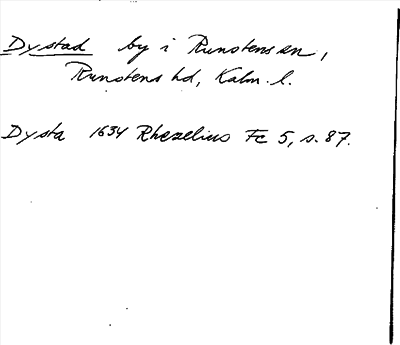 Dystad by i Runstens sn,
Runstens hd, Kalm. l.
Dysta 1634 Rhezelius Fc 5, s. 87.